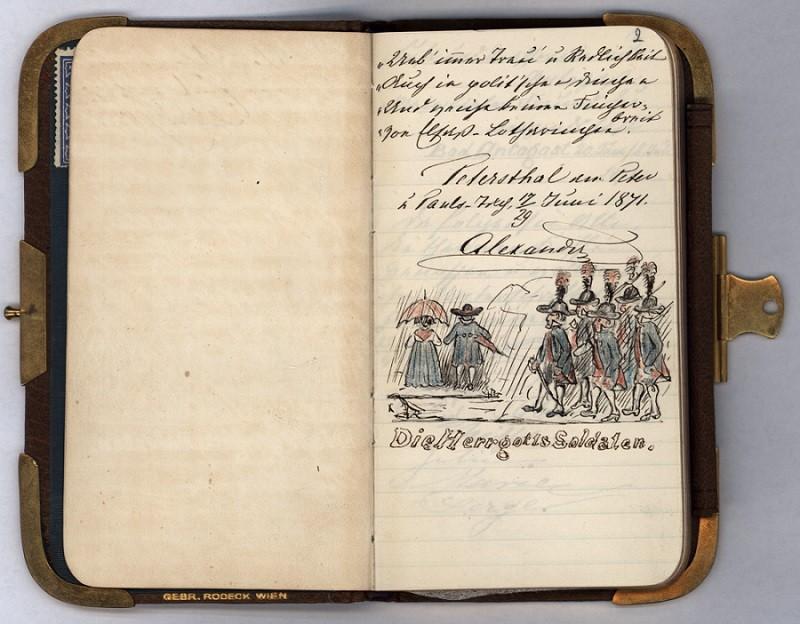 2
„Üb' immer Treu' u Redlichkeit
„Auch in polit'schen Dingen
„Und weiche keinen Finger-
breit
„Von Elsaß-Lothringen.
Petersthal am Peter
u Pauls-Tag, 17/29 Juni 1871.
Alexander
Die Herrgotts Soldaten.
GEBR. RODECK WIEN